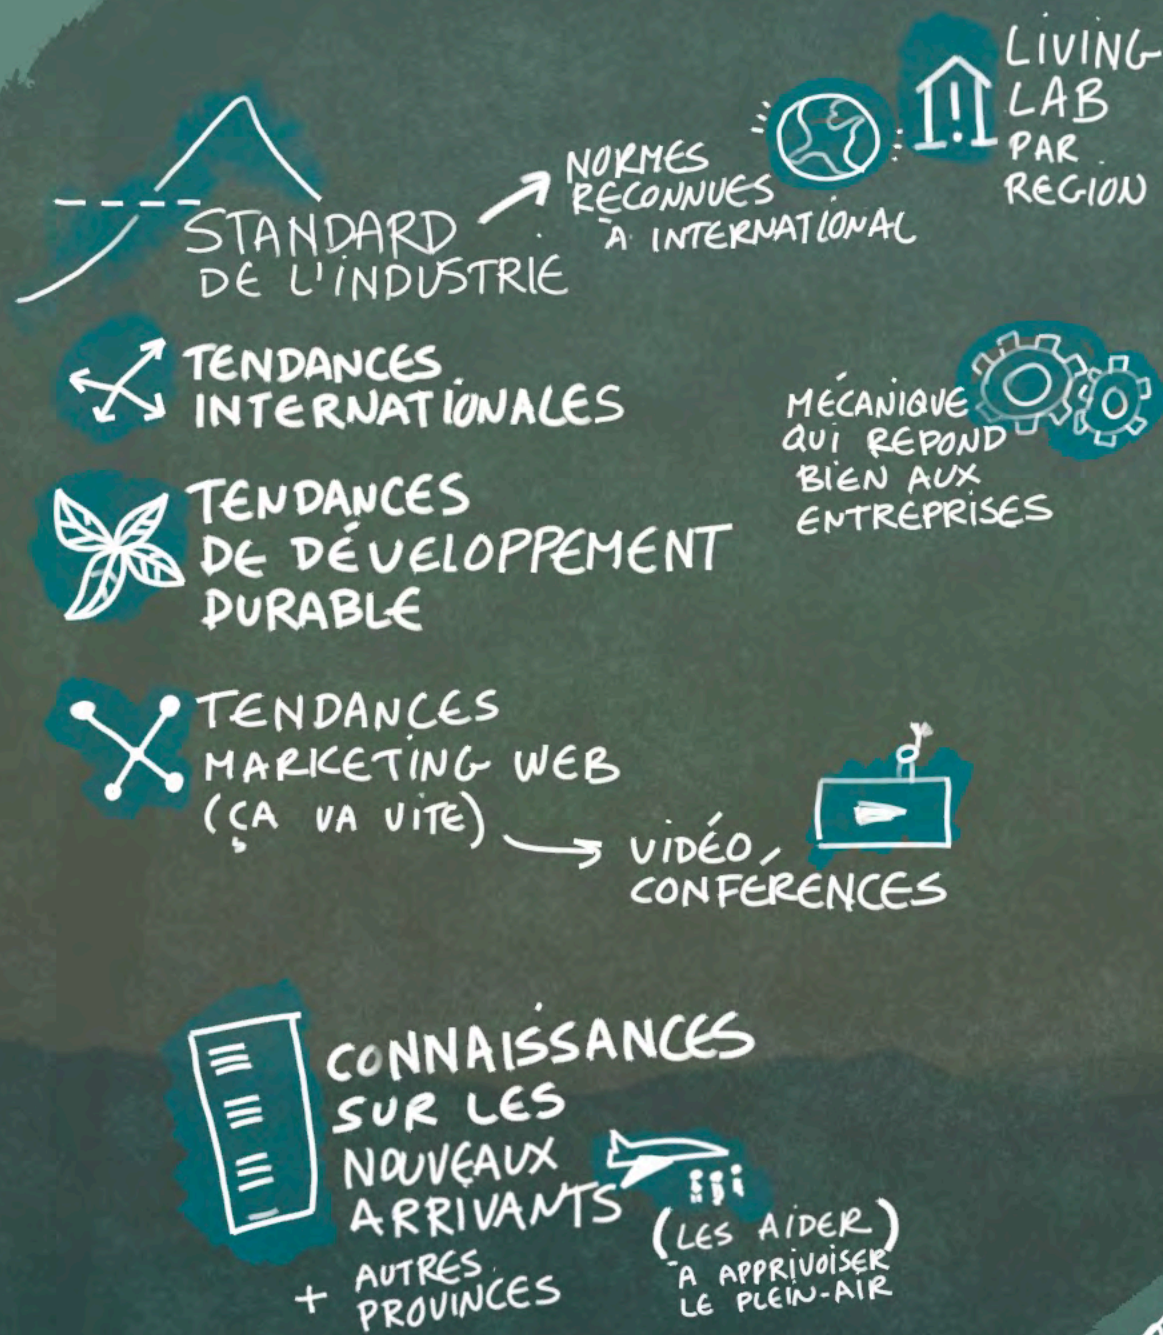 STANDARD
DE L'INDUSTRIE
NORMES
RECONNUES
À INTERNATIONAL
LIVING
LAB
PAR
REGION
TENDANCES
INTERNATIONALES
MÉCANIQUE
QUI REPOND
BIEN AUX
ENTREPRISES
TENDANCES
DE DÉVELOPPEMENT
DURABLE
TENDANCES
MARKETING WEB
(ÇA VA VITE)
VIDÉO
CONFÉRENCES
CONNAISSANCES
SUR LES
NOUVEAUX
ARRIVANTS
+ AUTRES
PROVINCES
(LES AIDER)
À APPRIVOISER
LE PLEIN-AIR